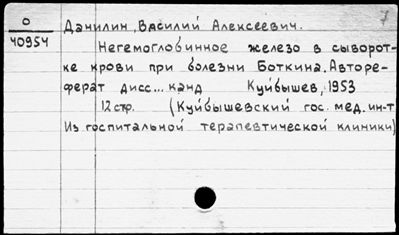 О
40954
Данилин, Василий Алексеевич.
Негемоглобинное железо в сыворот-
ке крови при болезни Боткина. Авторе-
ферат дисс... канд Куйбышев, 1953
12 стр. (Куйбышевский гос. мед. ин-т
Из госпитальной терапевтической клиники)